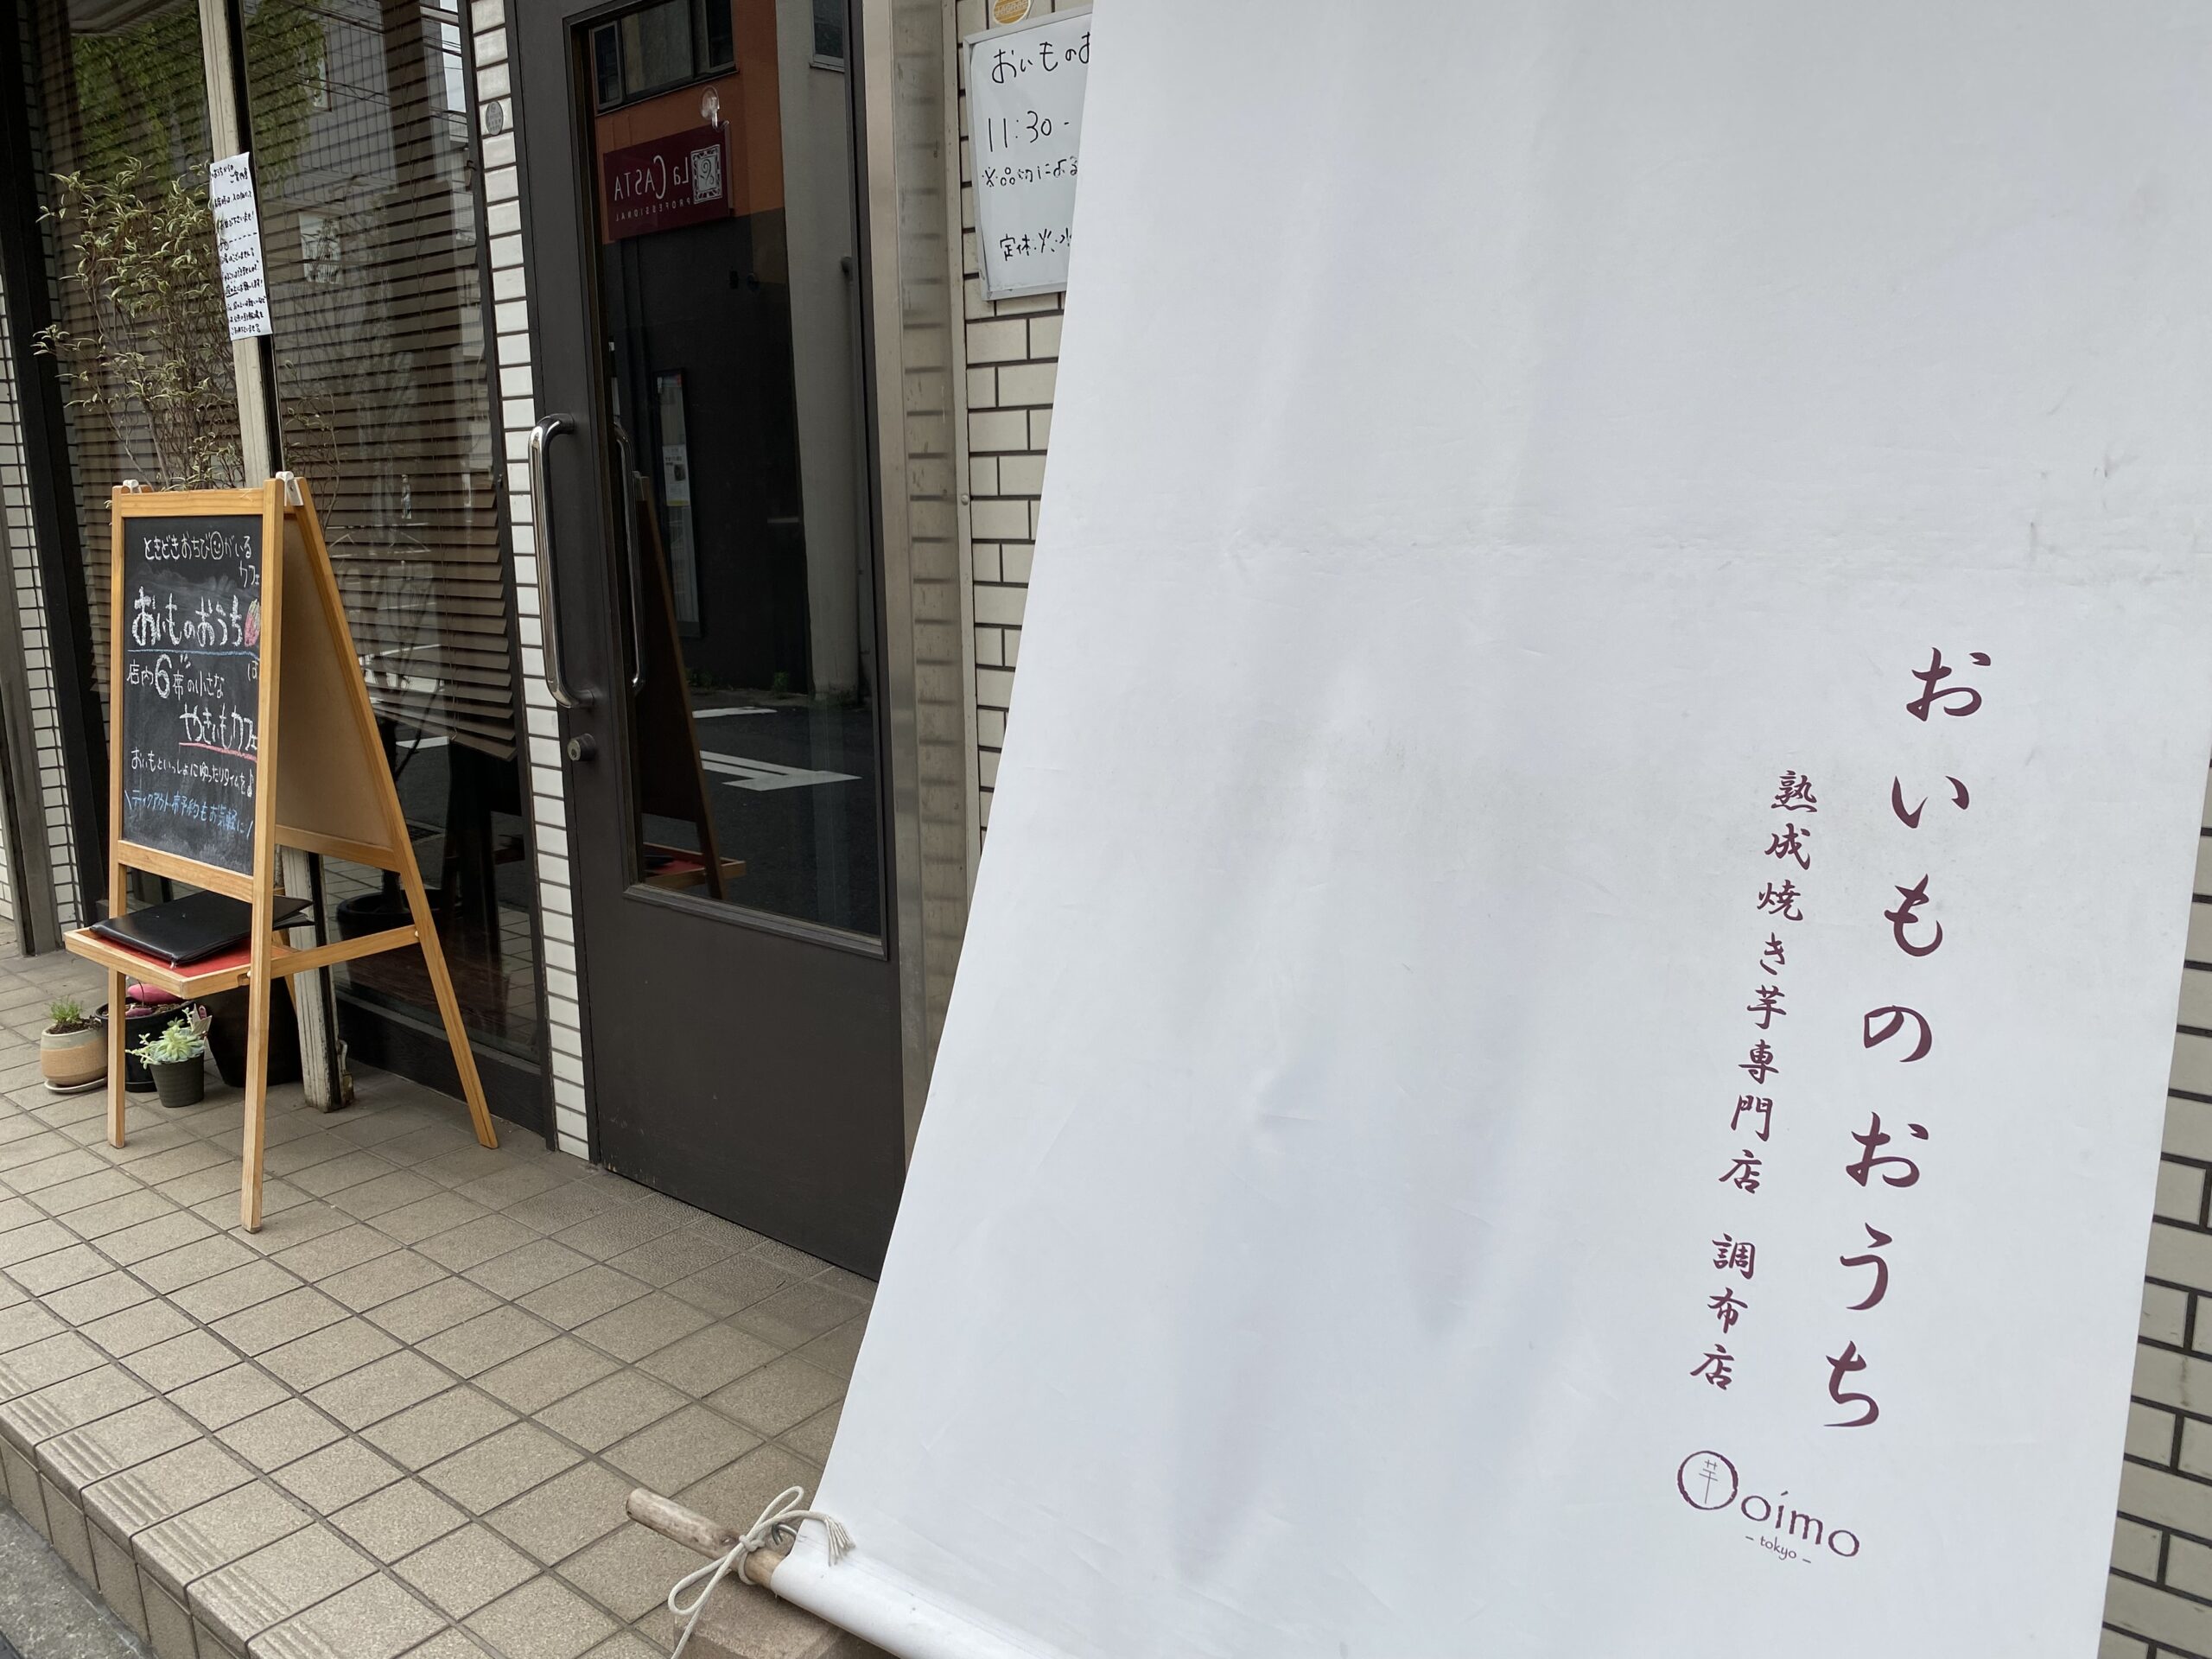 おいものおうち
熟成焼き芋専門店 調布店
芋
oimo
- tokyo -
おいものお
11:30 -
※品切による
定休.火.水
La CASTA
PROFESSIONAL
ときどきおちびがいる
カフェ
おいものおうち
は
店内6席の小さな
やきいもカフェ
おいもといっしょにゆったりタイムを♪
\テイクアウト・予約もお気軽に/